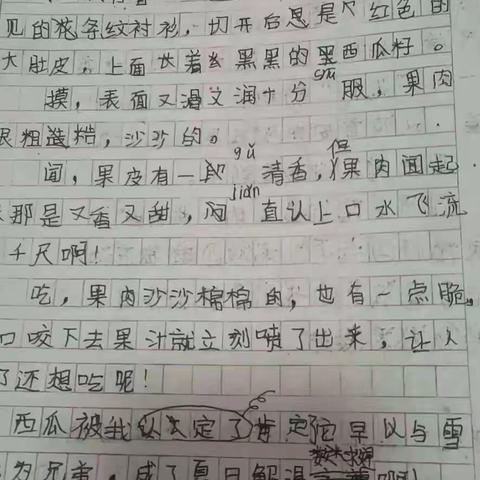 见的花条纹衬衫,切开后思是个红色的
大肚皮,上面长着黑黑的黑西瓜籽。
摸,表面又滑又润十分shū服,果肉
很粗造糙,沙沙的。
闻,果皮有一段gǔ清香,但果肉闻起
那是又香又甜,闻jiǎn直认上口水飞流
千尺啊!
吃,果肉沙沙棉棉的,也有一点脆,
口咬下去果汁就立刻喷了出来,让人
了还想吃呢!
西瓜被我认定了肯定它早以与雪
为兄弟,成了夏日解渴啊!